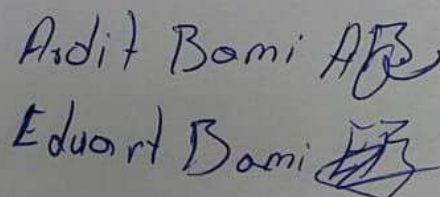 Ardit Bami AB
Eduart Bami EB